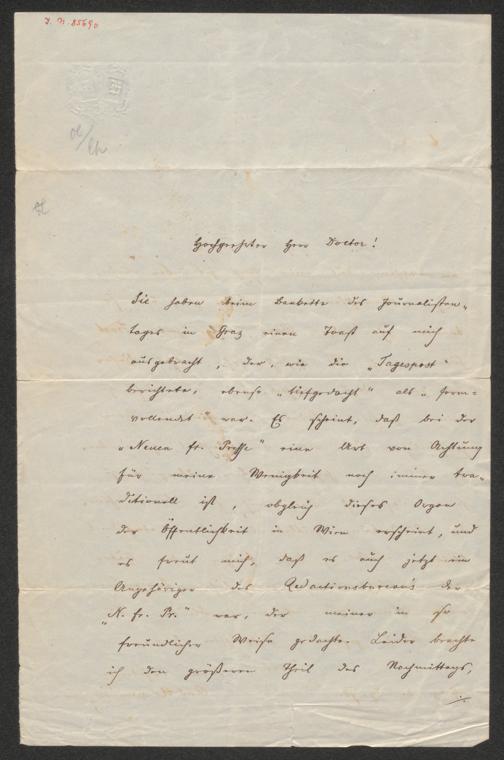 J. N. 85690
Hochgeehrter Herr Doctor!
Sie haben beim Bankette des Journalisten-
tages in Graz einen Toast auf mich
ausgebracht, der, wie die „Tagespost“
berichtete, ebenso „tiefgedacht“ als „form-
vollendet“ war. Es scheint, daß bei der
„Neuen fr. Presse“ eine Art von Achtung
für meine Wenigkeit noch immer tra-
ditionell ist, obgleich dieses Organ
der Öffentlichkeit in Wien erscheint, und
es freut mich, daß es auch jetzt ein
Angehöriger des Redactionsbureau's der
„N. fr. Pr.“ war, der meiner in so
freundlicher Weise gedachte. Leider brachte
ich den größeren Theil des Nachmittags,
./.